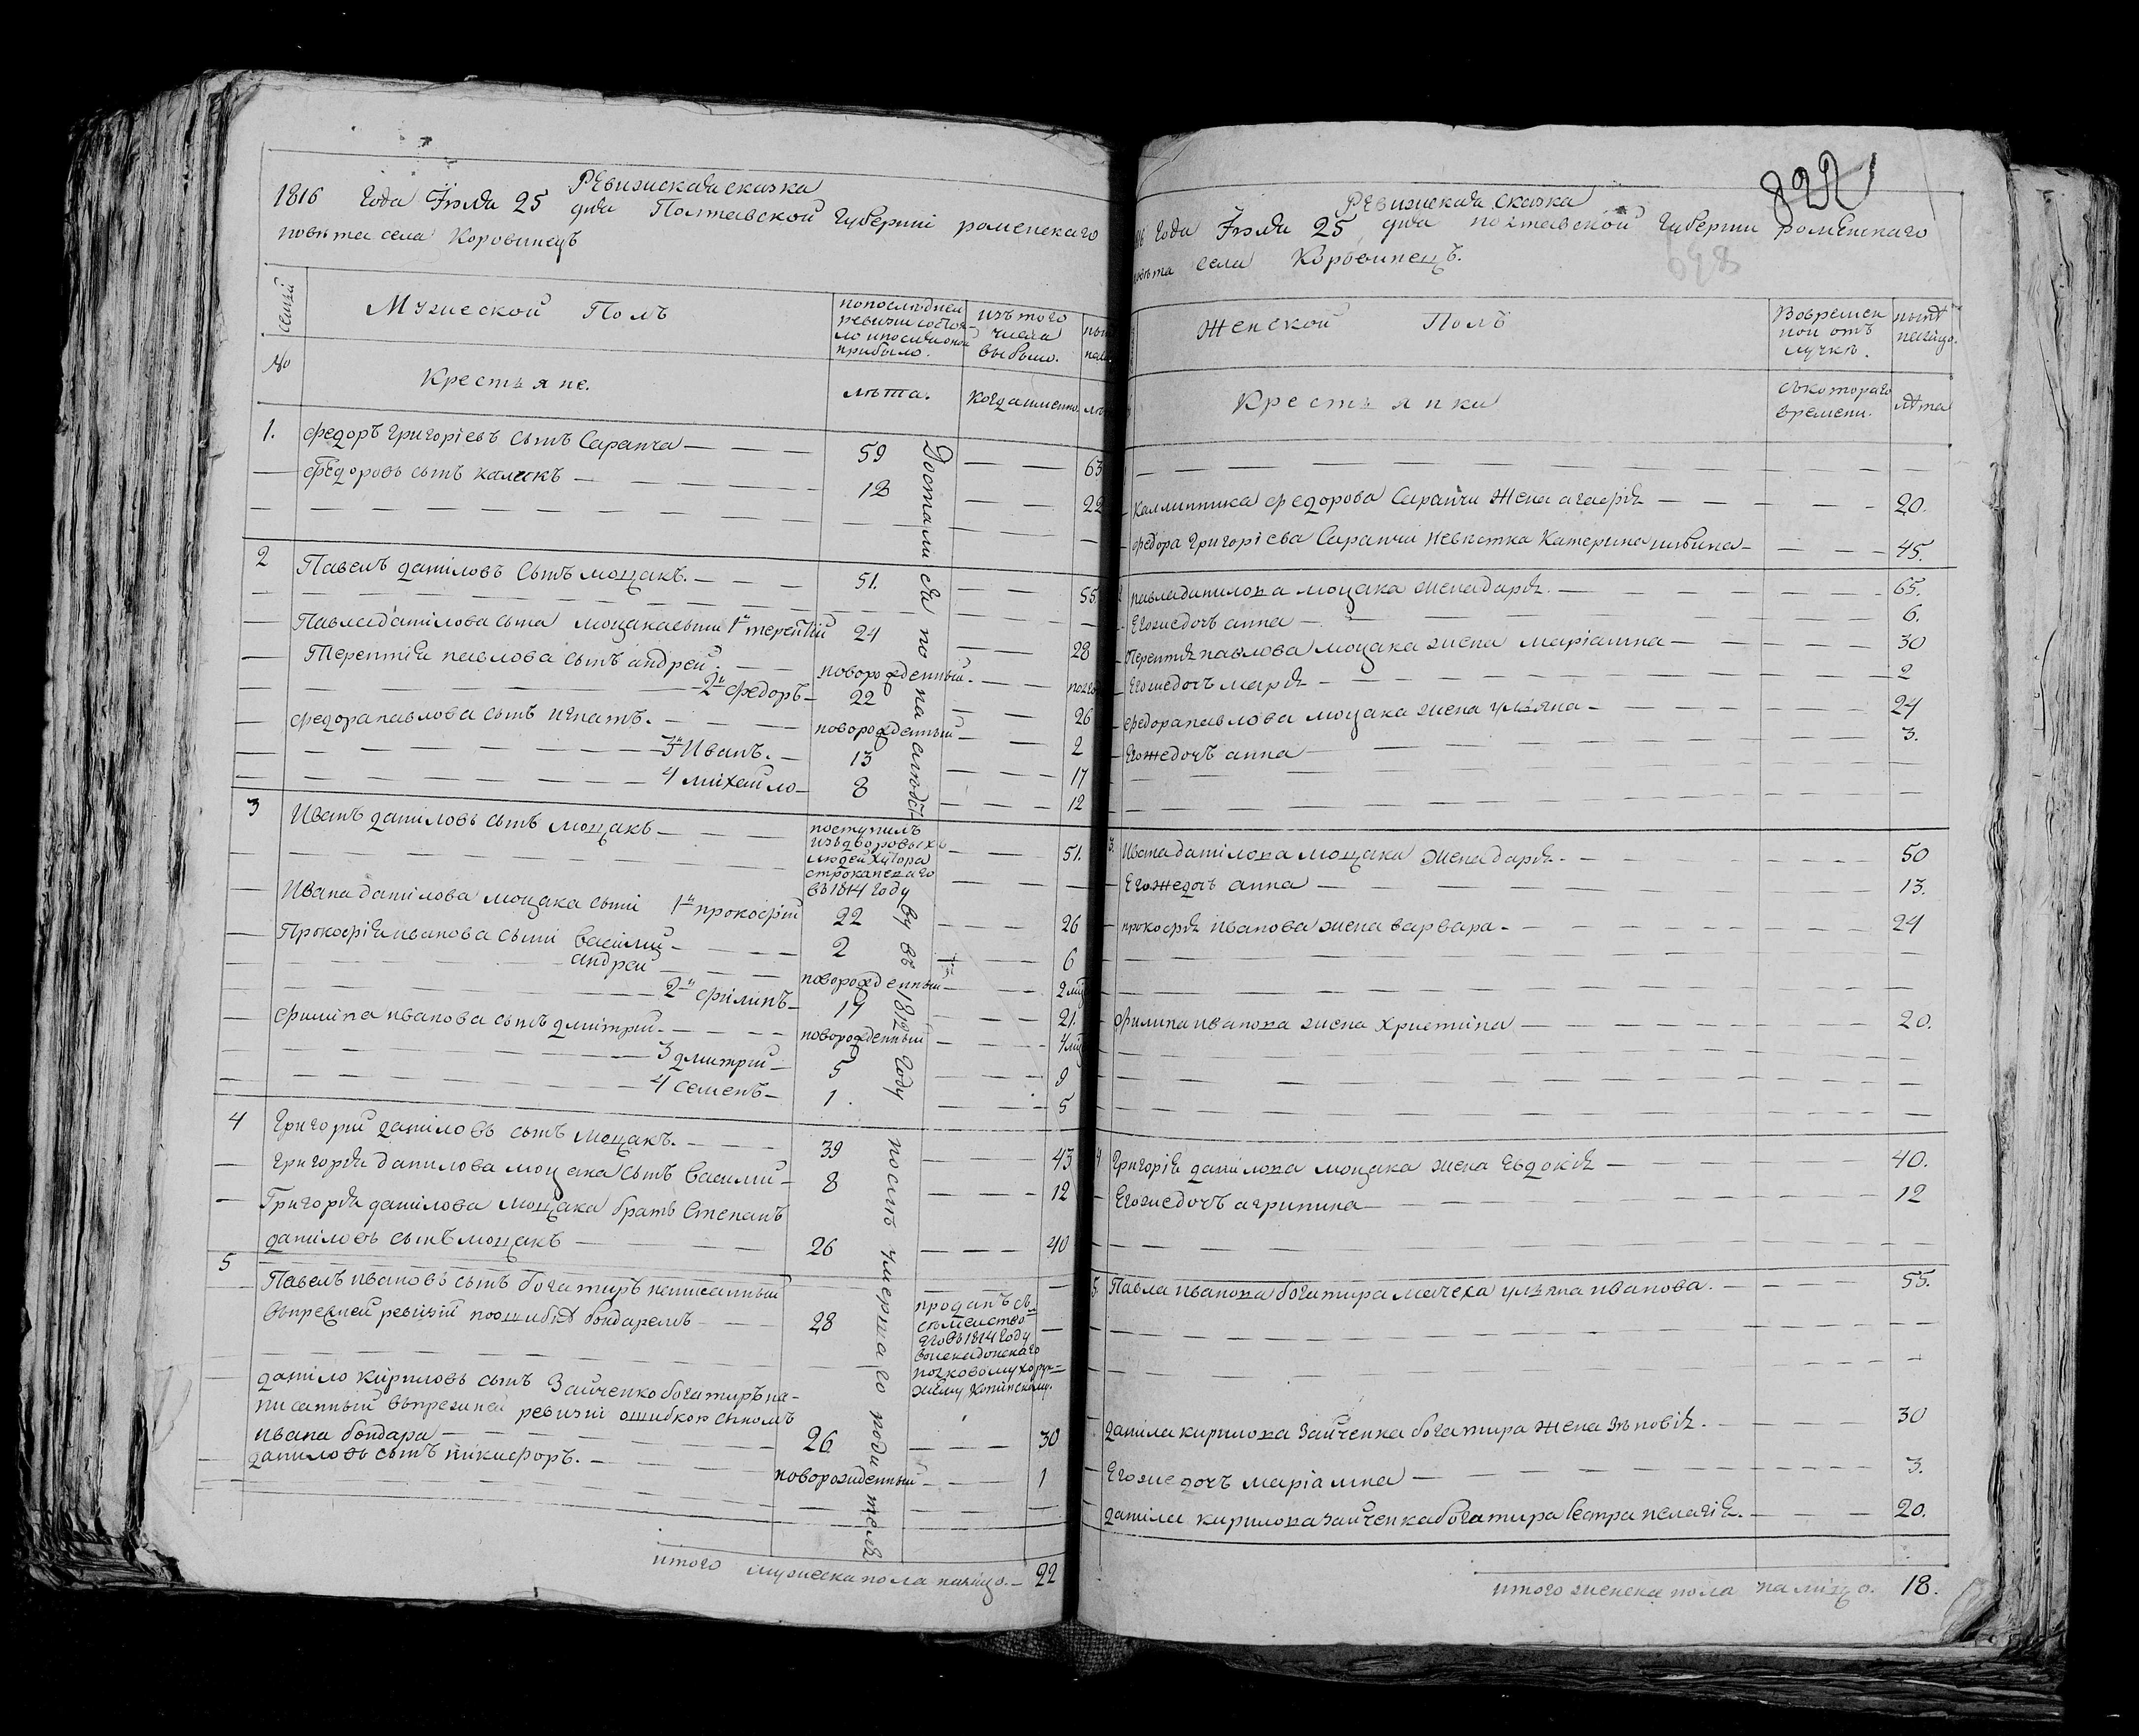 Ревизская сказка
1816 года Іюля 25 дня Полтавской губерніи роменскаго
повѣта села Коровинецъ
семей
Мужеской Полъ
по последней
ревизіи состоя-
ло и после оной
прибыло.
изъ того
числа
выбыло.
№
Крестьяне.
лѣта.
когда именно.
1. федоръ григоріевъ сынъ Сарапча 59 63
федоровъ сынъ калиникъ 18 22
2 Павелъ даніловъ сынъ моцакъ. 51. 55
Павла данілова сына моцака сыни 1й терентій 24 28
Терентія павлова сынъ андрей. новорожденный.
2й федоръ 22 26
федора павлова сынъ игнатъ. новорожденный 2
3й Иванъ. 13 17
4 михайло 8 12
3 Иванъ даніловъ сынъ моцакъ
поступилъ
изъ дворовыхъ
людей хутора
въ 1814 году
51.
Ивана данілова моцака сыни 1й прокофій 22 26
Прокофія иванова сыни василий 2 6
андрей новорожденный 2 мц
2й филипъ 17 21.
филипа иванова сынъ дмитрий. новорожденный 4 мц
3 дмитрий 5 9
4 семенъ 1. 5
4 Григорий даниловъ сынъ моцакъ. 39 43
григорія данилова моцака сынъ василий 8 12
Григорія данилова моцака братъ Степанъ
даніловъ сынъ моцакъ 26 40
5 Павелъ ивановъ сынъ богатиръ написанный
въ прежней ревизіи по ошибкѣ бондаремъ 28
проданъ съ
семейство
въ 1814 году
войска донскаго
полковому хорун-
жему
данило кириловъ сынъ Зайченко богатиръ на-
писанный въ прежней ревизіи ошибкою сыномъ
ивана бондара 26 30
даниловъ сынъ никифоръ. новорожденный 1
Достались по наслѣдству въ 1812 году после умершаго родителя
итого мужеска пола налицо. 22
822
Ревизская Сказка
года Іюля 25 дня полтавской губерніи роменскаго
повѣта села Коровинецъ.
Женской Полъ
Во времен
ной отъ
лучкѣ.
нынѣ
налицо.
Крестьянки
съ котораго
времени.
лѣта
Каллиника федорова Сарапчи жена агафія 20.
федора григоріева Сарапчи невѣстка Катерина 45.
2 павла данилова моцака жена дарія. 65.
Его же дочъ анна 6.
Терентія павлова моцака жена маріанна 30
Его же дочъ марія 2
федора павлова моцака жена ульяна 24
Его же дочъ анна 3.
3. Ивана данілова моцака жена дарія. 50
Его же дочъ анна 13.
прокофія иванова жена варвара 24
филипа иванова жена христина 20.
4 Григорія данілова моцака жена Евдокія 40.
Его же дочъ агрипина 12
5. Павла иванова богатира мачеха ульяна иванова. 55.
данила кирилова Зайченка богатира жена Зѣновія. 30
Его же дочъ маріанна 3.
данила кирилова зайченка богатира сестра пелагія. 20.
итого женска пола налицо. 18.